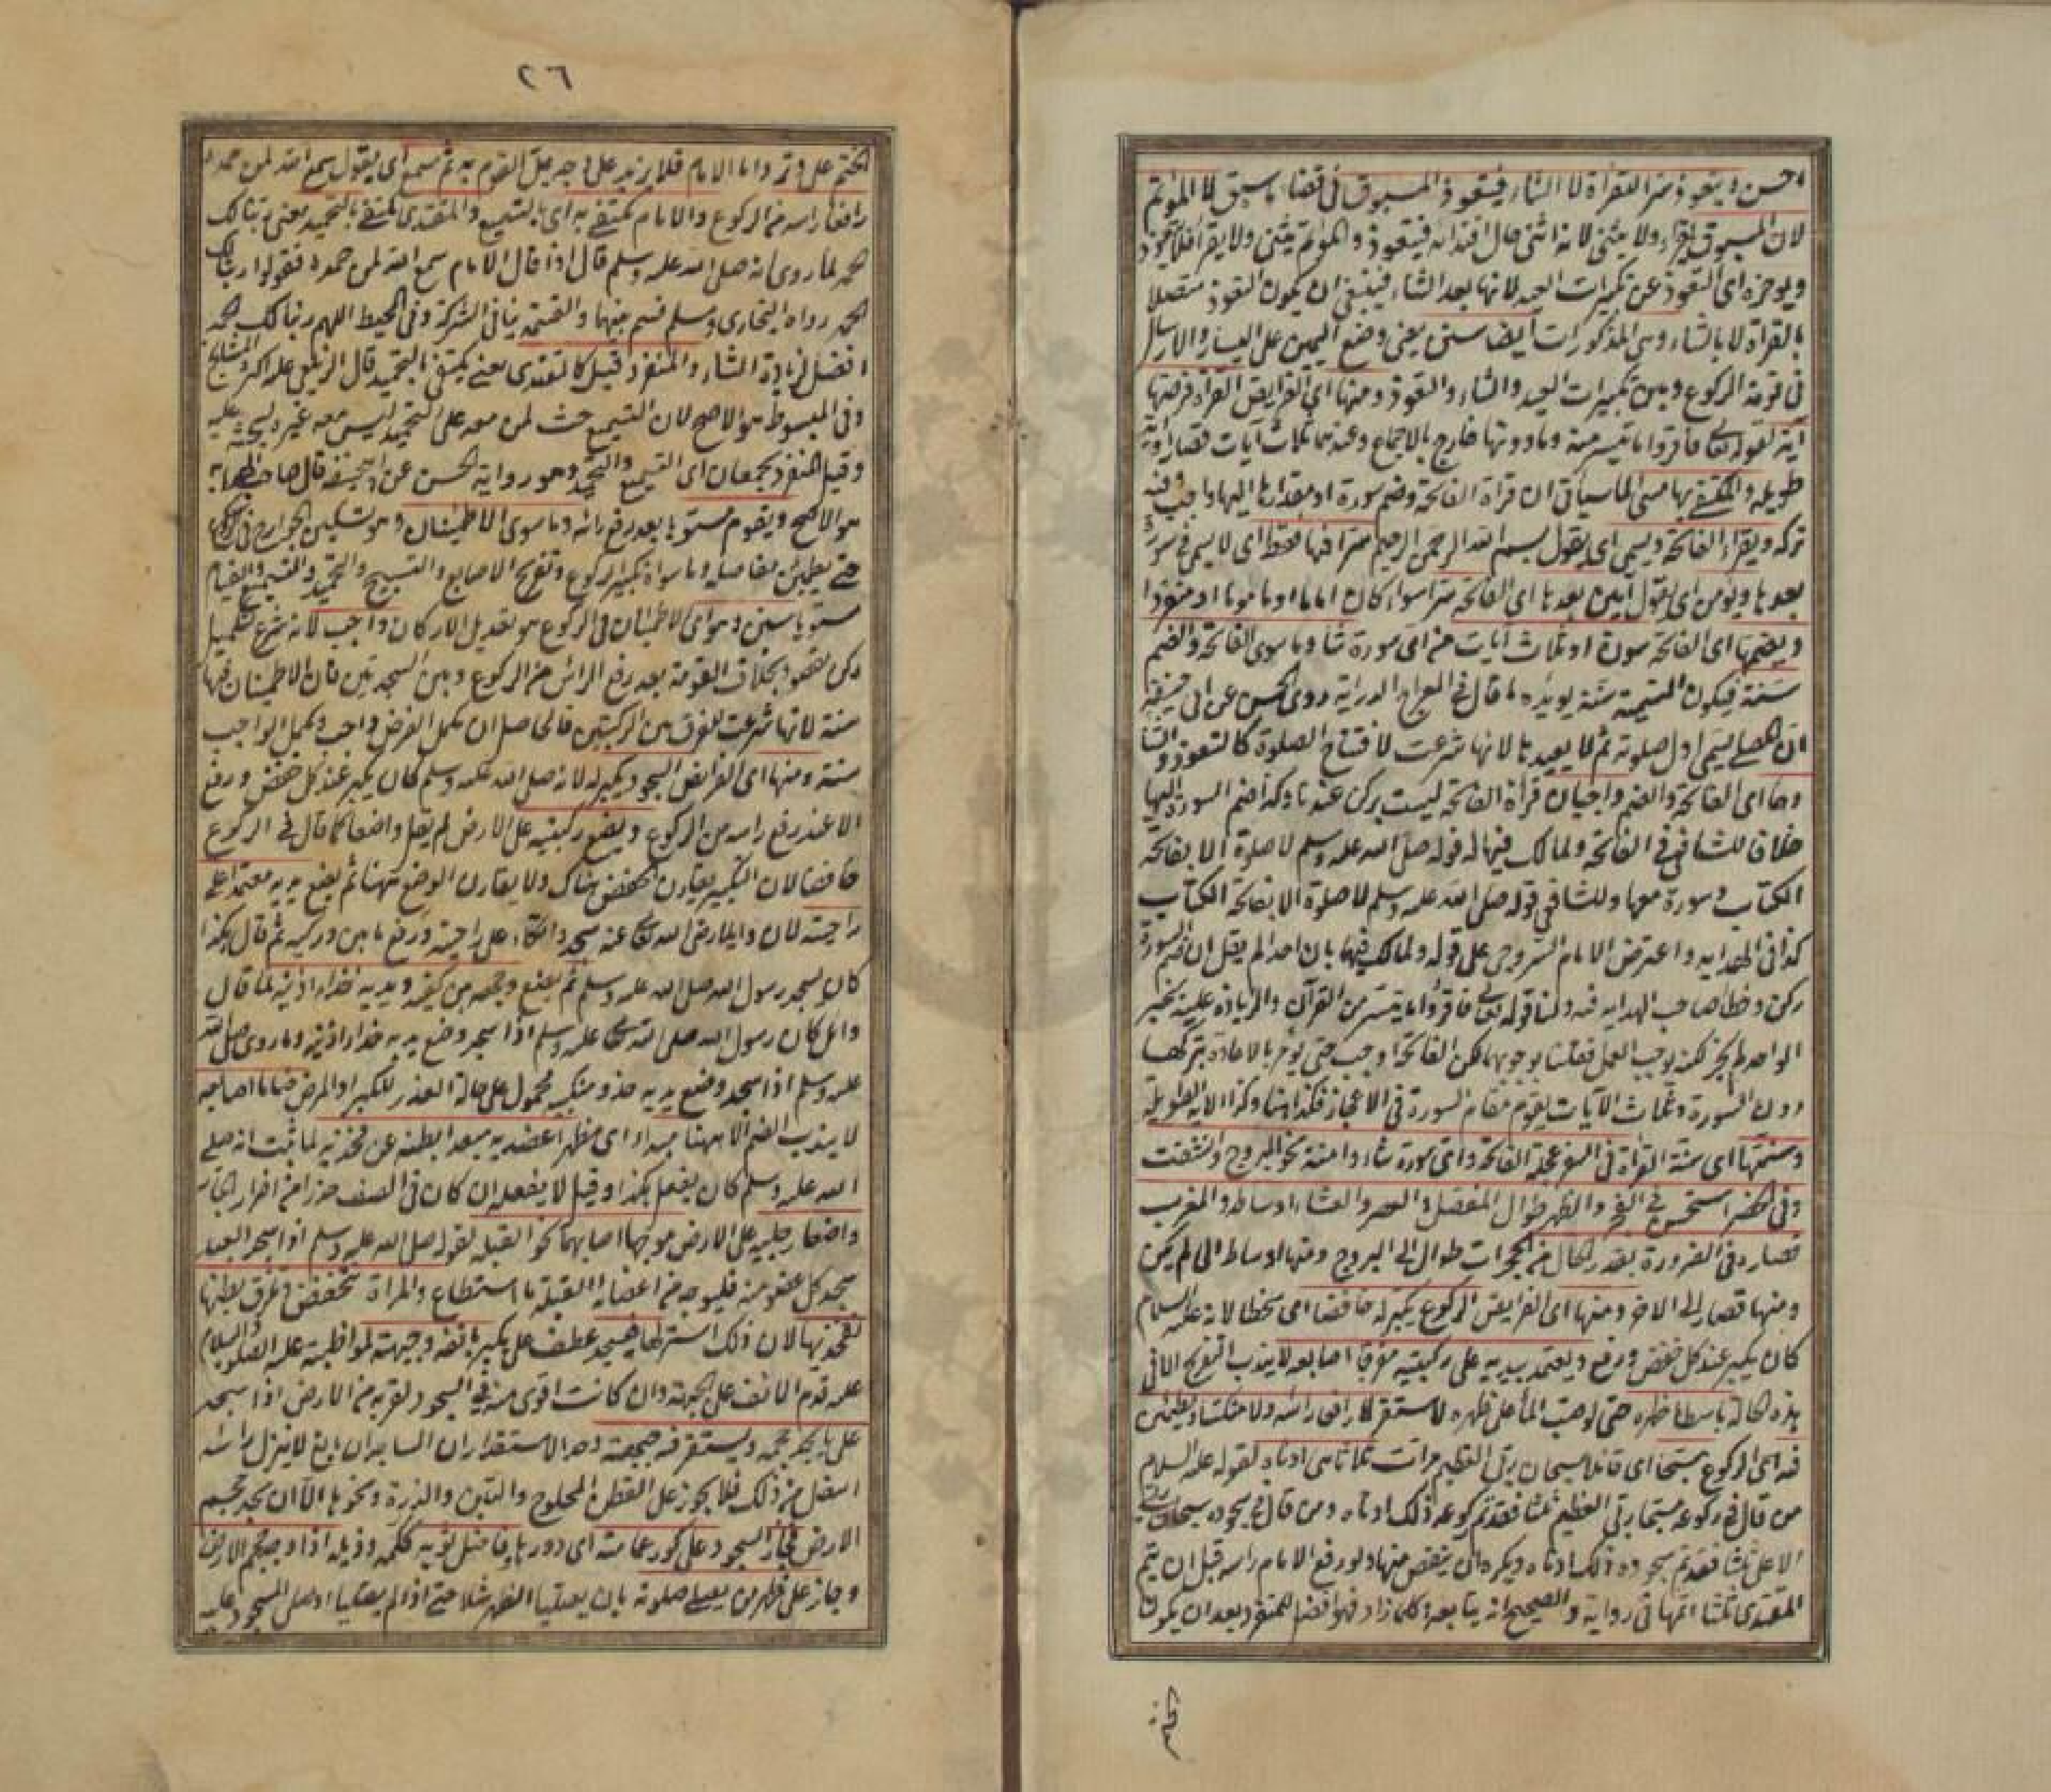 احسن ويتعوذ سرا للقراءة لا الثناء فيتعوذ المسبوق في قضاء ما سبق لا المؤتم
لان المسبوق يقراء ولا يثنى لانه اثنى حال اقتدائه فيتعوذ والمؤتم يثنى ولا يقرأ فلا يتعوذ
ويؤخره اى التعوذ عن تكبيرات العيد لانها بعد الثناء فينبغى ان يكون التعوذ متصلا
بالقراءة لا بالثناء وسى المذكورات ايضا سنن يعنى وضع اليمين على اليسار والارسال
فى قومة الركوع وبين تكبيرات العيد والثناء والتعوذ ومنها اى الفرايض القراءة فرضها
آية لقوله تعالى فاقرؤا ما تيسر منه وما دونها خارج بالاجماع وعندهما ثلاث آيات قصار او آية
طويلة والمكتفى بها مسئ لما سيأتى ان قراءة الفاتحة وضم سورة او مقدارها اليها واجب
تركه ويقراء الفاتحة ويسمى اى يقول بسم الله الرحمن الرحيم سرا فيها فقط اى لا يسمى فى سورة
بعدها ويؤمن اى يقول آمين بعدها اى الفاتحة سرا سواء كان اماما او ماموما او منفردا
ويضمها اى الفاتحة سورة او ثلاث آيات من اى سورة شاء وما سوى الفاتحة والضم
سنة فيكون التسمية سنة يؤيده ما قال فى المعراج الدراية روى الحسن عن ابى حنيفة
ان المصلى يسمى اول صلوته ثم لا يعيدها لانها شرعت لافتتاح الصلوة كالتعوذ والثنا
وهما اى الفاتحة والضم واجبان قراءة الفاتحة ليست بركن عندنا وكذا ضم السورة اليها
خلافا للشافعى فى الفاتحة ولمالك فيهما له قوله صلى الله عليه وسلم لا صلوة الا بفاتحة
الكتاب وسورة معها وللشافعى قوله صلى الله عليه وسلم لا صلوة الا بفاتحة الكتاب
كذا فى الهداية واعترض الامام السروجى على قوله ولمالك فيهما بان احدا لم يقل ان ضم السورة
ركن وخطأ صاحب الهداية فيه ولنا قوله تعالى فاقرؤا ما تيسر من القرآن والزيادة عليه بخبر
الواحد لم يجز لكنه يوجب العمل فقلنا بوجوبهما لكن الفاتحة اوجب حتى يؤمر بالاعادة بتركها
دون السورة وثلاث الآيات يقوم مقام السورة فى الاعجاز فكذا هنا وكذا الآية الطويلة
وسنتها اى سنة القراءة فى السفر عجلة الفاتحة واى سورة شاء وامنة نحو البروج وانشقت
وفى الحضر استحسن فى الفجر والظهر طوال المفصل والعصر والعشاء اوساطه والمغرب
قصاره وفى الضرورة بقدر الحال من الحجرات طوال الى البروج ومنها اوساط الى لم يكن
ومنها قصار الى الاخر ومنها اى الفرايض الركوع يكبر له خافضا اى منحطا لانه عليه السلام
كان يكبر عند كل خفض ورفع ويعتمد بيديه على ركبتيه مفرقا اصابعه لا يندب التفريج الا فى
هذه الحالة باسطا ظهره حتى لو صب الماء على ظهره لاستقر لا رافعا رأسه ولا منكسا ويطمئن
فيه اى الركوع مسبحا اى قائلا سبحان ربى العظيم مرات ثلاثا هى ادناه لقوله عليه السلام
من قال فى ركوعه سبحان ربى العظيم ثلثا فقد تم ركوعه وذلك ادناه ومن قال فى سجوده سبحان ربى
الاعلى ثلثا فقد تم سجوده وذلك ادناه ويكره ان ينقص منها ولو رفع الامام راسه قبل ان يتم
المقتدى ثلثا اتمها فى رواية والصحيح انه يتابعه وكلما زاد فهو افضل للمنفرد بعد ان يكون
الختم
٢٦
الختم على وتر واما الامام فلا يزيد على وجه يمل القوم به ثم سمع اى يقول سمع الله لمن حمده
رافعا راسه من الركوع والامام يكتفى به اى بالتسميع والمقتدى يكتفى بالتحميد يعنى ربنا لك
الحمد لما روى انه صلى الله عليه وسلم قال اذا قال الامام سمع الله لمن حمده فقولوا ربنا لك
الحمد رواه البخارى ومسلم قسم بينهما والقسمة ينافى الشركة وفى المحيط اللهم ربنا لك الحمد
افضل لزيادة الثناء والمنفرد قيل كالمقتدى يعنى يكتفى بالتحميد قال الزيلعى عليه اكثر المشايخ
وفى المبسوط هو الاصح لان التسميع حث لمن معه على التحميد ليس معه غيره ليحثه عليه
وقيل المنفرد يجمعان اى التسميع والتحميد وهو رواية الحسن عن ابى حنيفة قال صاحب الهداية
هو الاصح ويقوم مستويا بعد رفع رأسه وما سوى الاطمينان وهو تسكين الجوارح فى الركوع
حتى يطمئن مفاصله وما سواه تكبير الركوع وتفريج الاصابع والتسبيح والتحميد والتسميع والقيام
مستويا سنن وهو اى الاطمئنان فى الركوع هو تعديل الاركان واجب لانه شرع لتكميل
ركن مقصود بخلاف القومة بعد رفع الرأس من الركوع وبين السجدتين فان الاطمينان فيها
سنة لانها شرعت للفرق بين الركنين فالحاصل ان مكمل الفرض واجب ومكمل الواجب
سنة ومنها اى الفرايض السجود يكبر له لانه صلى الله عليه وسلم كان يكبر عند كل خفض ورفع
الا عند رفع راسه من الركوع ويضع ركبتيه على الارض لم يقل واضعا كما قال فى الركوع
خافضا لان التكبير يقارن الخفض هناك ولا يقارن الوضع ههنا ثم يضع يديه معتمدا على
راحتيه لان وايلا رضى الله تعالى عنه سجد واتكاء على راحتيه ورفع ما بين وركيه ثم قال هكذا
كان يسجد رسول الله صلى الله عليه وسلم ثم يضع وجهه بين كفيه ويديه حذاء اذنيه لما قال
وائل كان رسول الله صلى الله تعالى عليه وسلم اذا سجد وضع يديه حذاء اذنيه وما روى صلى الله
عليه وسلم اذا سجد وضع يديه حذو منكبيه محمول على حالة العذر للكبر او المرض ضاما اصابعه
لا يندب الضم الا ههنا مبديا اى مظهرا عضديه مبعدا بطنه عن فخذيه لما ثبت انه صلى
الله عليه وسلم كان يفعل هكذا وقيل لا يفعله ان كان فى الصف حذرا من اضرار الجار
واضعا رجليه على الارض موجها اصابعهما نحو القبلة لقوله صلى الله عليه وسلم اذا سجد العبد
سجد كل عضو منه فليوجه من اعضائه القبلة ما استطاع والمراة تنخفض وتلزق بطنها
لفخذيها لان ذلك استر لها فيسجد عطف على يكبر بانفه وجبهته لمواظبته عليه الصلوة والسلام
عليه قدم الانف على الجبهة وان كانت اقوى منه فى السجود لقربه من الارض اذا سجد
على ما يجد حجمه ويستقر فيه جبهته وحد الاستقرار ان الساجد ان بالغ لا ينزل رأسه
اسفل من ذلك فلا يجوز على القطن المحلوج والتبن والذرة ونحوها الا ان يجد حجم
الارض فجاز السجود على كور عمامته اى دورها وفاضل ثوبه ككمه وذيله اذا وجد حجم الارض
وجاز على ظهر من يصلى صلوته بان يصليا الظهر مثلا حتى اذا لم يصليا او صلى المسجود عليه